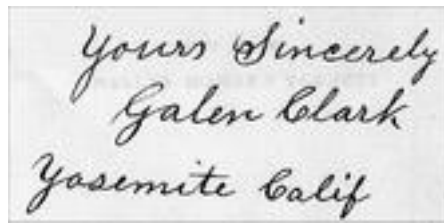 Yours Sincerely
Galen Clark
Yosemite Calif